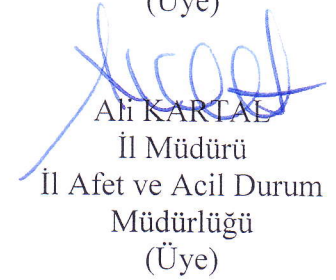 (Üye)
Ali KARTAL
İl Müdürü
İl Afet ve Acil Durum
Müdürlüğü
(Üye)